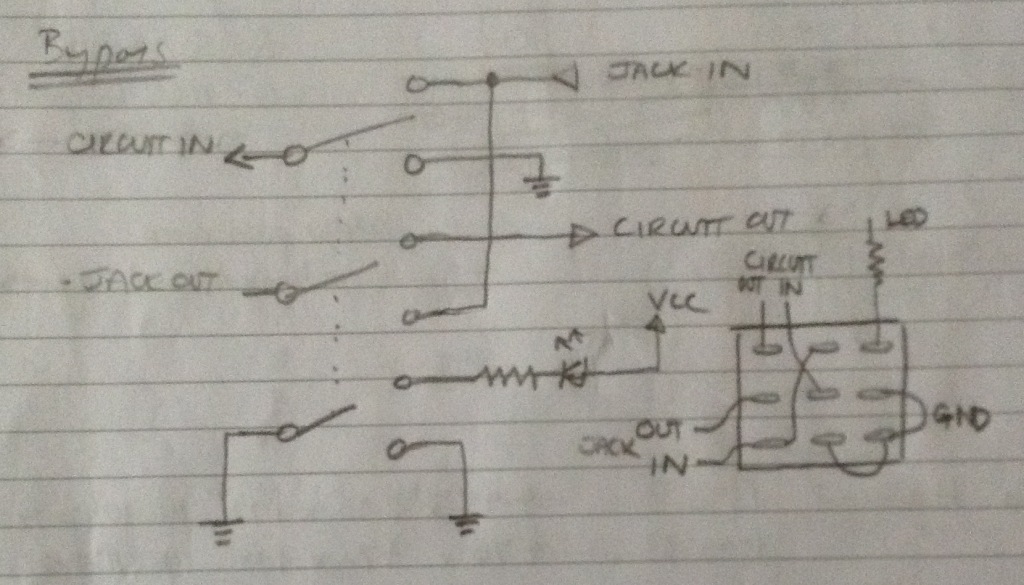 Bypass
JACK IN
CIRCUIT IN
CIRCUIT OUT
JACK OUT
VCC
LED
CIRCUIT
OUT IN
GND
JACK OUT
IN